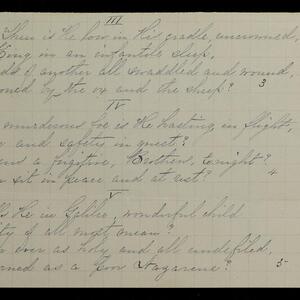 III
Then is He low in His cradle, uncrowned,
King in an infantile sleep,
of another all swaddled and wound,
by the ox and the sheep? 3
IV
murderous foe is He hasting, in flight,
and safety in quest?
a fugitive, Brother, to-night?
sit in peace and at rest? 4
V
He in Galilee, wonderful child
of all most mean?
ever as holy and all undefiled,
as a poor Nazarene? 5